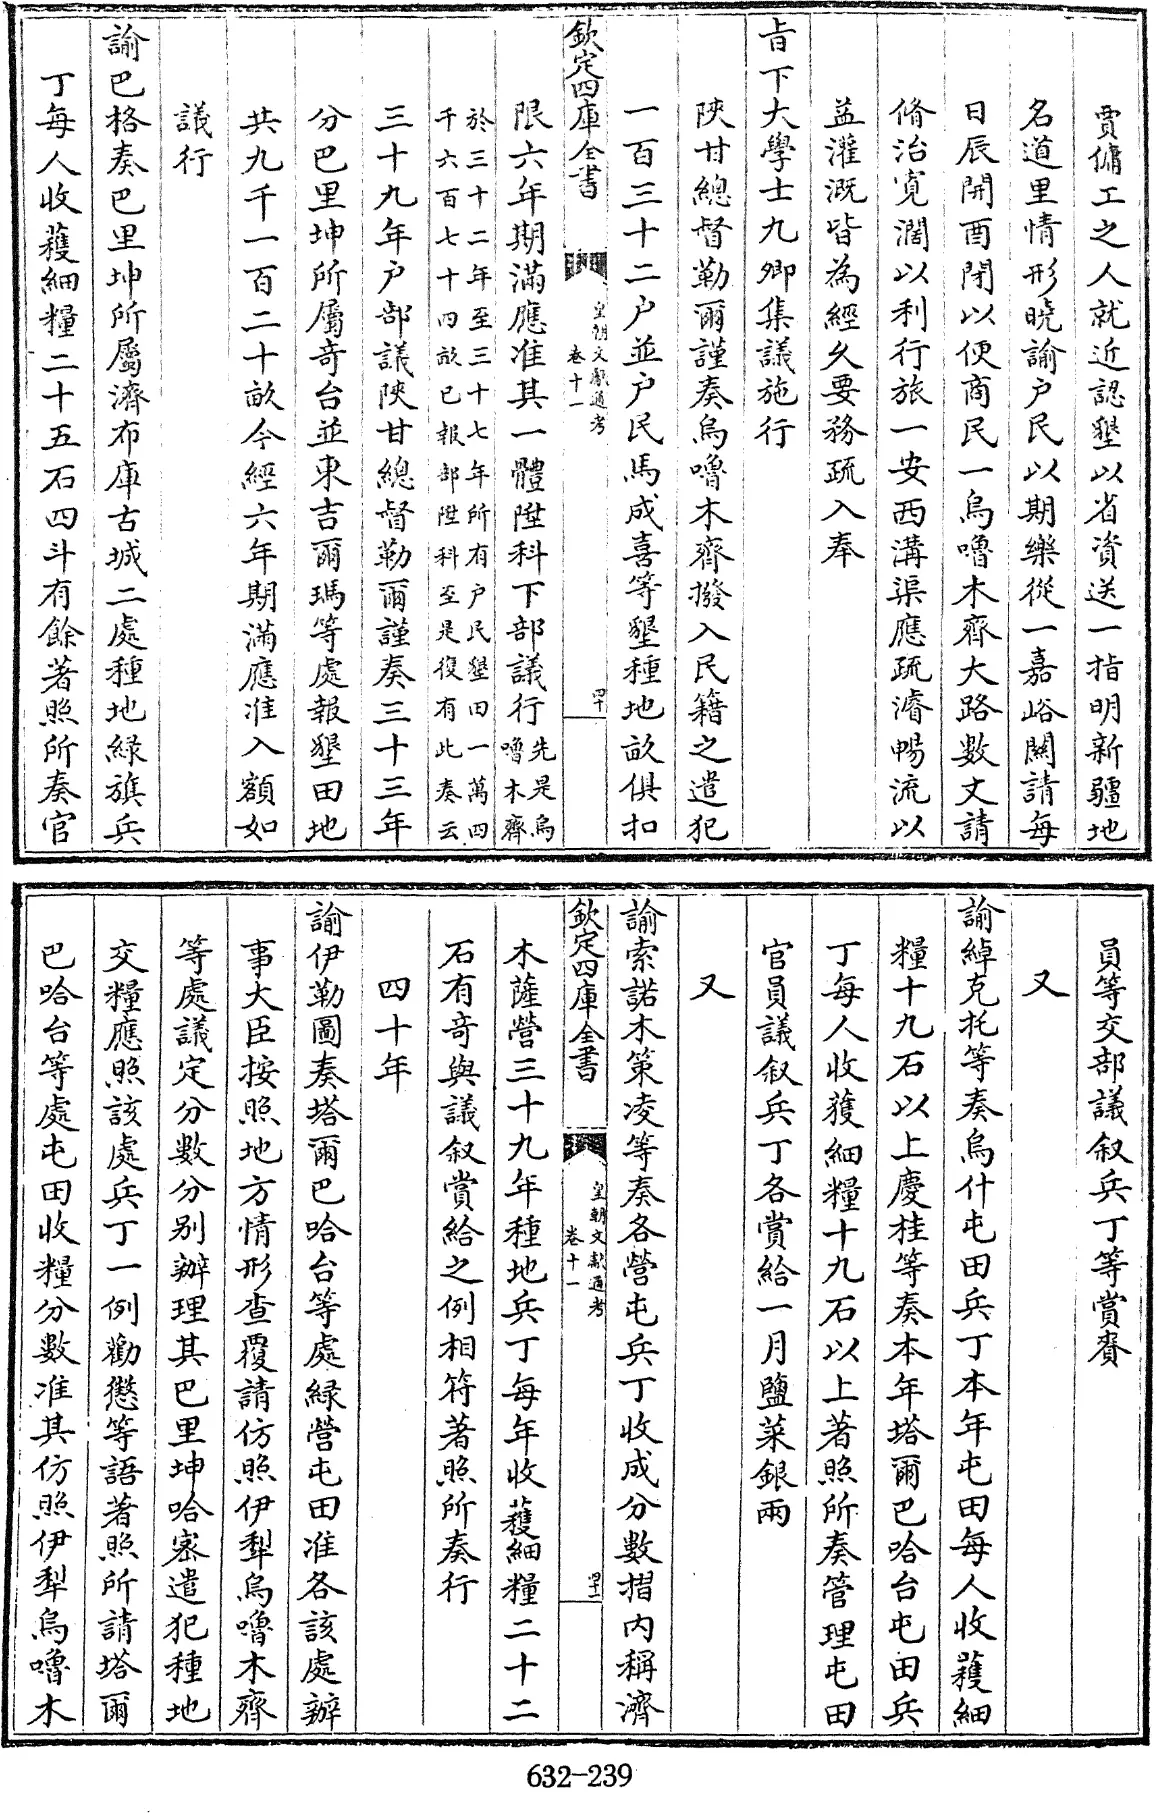 賈傭工之人就近認墾以省資送一指明新疆地
名道里情形曉諭户民以期樂從一嘉峪關請每
日辰開酉閉以便商民一烏嚕木齊大路數丈請
脩治寛濶以利行旅一安西溝渠應疏濬暢流以
益灌溉皆為經久要務疏入奉
旨下大學士九卿集議施行
陜甘總督勒爾謹奏烏嚕木齊撥入民籍之遣犯
一百三十二户並户民馬成喜等墾種地畝俱扣
欽定四庫全書
皇朝文獻通考
卷十一
四十
限六年期滿應准其一體陞科下部議行先是烏
嚕木齊
於三十二年至三十七年所有户民墾田一萬四
千六百七十四畝已報部陞科至是復有此奏云
三十九年户部議陜甘總督勒爾謹奏三十三年
分巴里坤所屬竒台並東吉爾瑪等處報墾田地
共九千一百二十畝今經六年期滿應准入額如
議行
諭巴格奏巴里坤所屬濟布庫古城二處種地緑旗兵
丁每人收穫細糧二十五石四斗有餘著照所奏官
員等交部議叙兵丁等賞賚
又
諭綽克托等奏烏什屯田兵丁本年屯田每人收穫細
糧十九石以上慶桂等奏本年塔爾巴哈台屯田兵
丁每人收穫細糧十九石以上著照所奏管理屯田
官員議叙兵丁各賞給一月鹽菜銀兩
又
諭索諾木策凌等奏各營屯兵丁收成分數摺内稱濟
欽定四庫全書
皇朝文獻通考
卷十一
四十一
木薩營三十九年種地兵丁每年收穫細糧二十二
石有竒與議叙賞給之例相符著照所奏行
四十年
諭伊勒圖奏塔爾巴哈台等處緑營屯田准各該處辦
事大臣按照地方情形查覆請仿照伊犁烏嚕木齊
等處議定分數分别辦理其巴里坤哈宻遣犯種地
交糧應照該處兵丁一例勸懲等語著照所請塔爾
巴哈台等處屯田收糧分數准其仿照伊犁烏嚕木
632-239